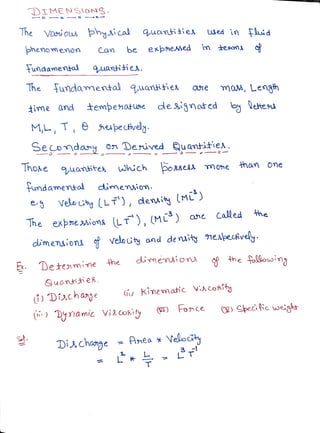 DIMENSIONS.
The Various physical quantities used in fluid
phenomenon can be expressed in terms of
fundamental quantities.
The fundamental quantities are mass, Length
time and temperature designated by letters
M,L, T, θ respectively.
Secondary or Derived Quantities.
Those quantites which possess more than one
fundamental dimension.
e.g Velocity (LT⁻¹), density (ML⁻³)
The expressions (LT⁻¹), (ML⁻³) are called the
dimensions of velocity and density respectively.
Determine the dimensions of the following
Quantities.
(i) Discharge (iv) Kinematic Viscosity
(ii) Dynamic Viscosity (iii) Force (v) Specific weight
Sol. Discharge = Area × Velocity
= L² * L/T = L³T⁻¹